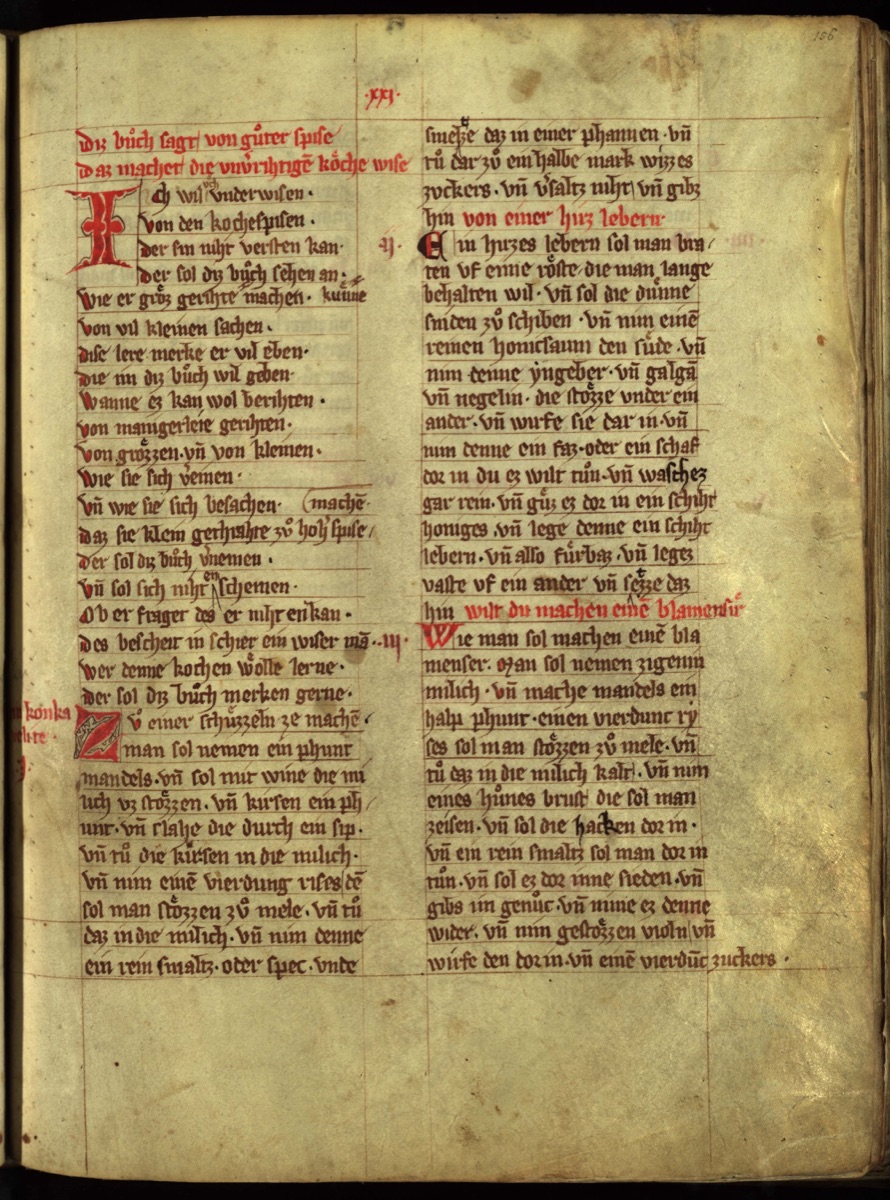 156
·xxi·
Diz bůch sagt von gůter spise
Daz machet die vnv̓rihtigē kȯ̂che wise
Ich wil vch vnderwisen·
von den kochespisen·
der sin niht versten kan·
der sol diz bůch sehen an·
wie er groͤz gerihte machen· kuͤnne
von vil kleinen sachen·
dise lere merke er vil eben·
die im diz bůch wil geben·
wanne ez kan wol berihten·
von manigerleie gerihten·
von groͤzzen·vn̄ von kleinen·
wie sie sich v̓einen·
vn̄ wie sie sich besachen· machē·
daz sie klein gerihte zů hoh̓ spise/
der sol diz bůch v̓nemen·
vn̄ sol sich niht enschemen·
Ob er fraget des er niht enkan·
des bescheit in schier ein wiser mā·
wer denne kochen woͤlle lerne·
der sol diz bůch merken gerne·
konka
elite·
Zů einer schuͤzzeln ze machē·
man sol nemen ein phunt
mandels· vn̄ sol mit wine die mi
lich vz stoͤzzen· vn̄ kirsen ein ph/
unt· vn̄ slahe die durch ein sip·
vn̄ tů die kuͤrsen in die milich·
vn̄ nim einē vierdung rises dē
sol man stoͤzzen zů mele· vn̄ tů
daz in die milich· vn̄ nim denne
ein rein smaltz· oder spec· vnde
smeltze daz in einer phannen· vn̄
tů dar zů ein halbe mark wizzes
zuckers· vn̄ v̓saltz niht vn̄ gibz
hin von einer hirz lebern·
·ij·
Ein hirzes lebern sol man bra/
ten vf eime roͤste die man lange
behalten wil· vn̄ sol die duͤnne
sniden zů schiben· vn̄ nim einē
reinen honicsaum den suͤde· vn̄
nim denne yngeber· vn̄ galgā
vn̄ negelin· die stoͤzze vnder ein
ander· vn̄ wirfe sie dar in· vn̄
nim denne ein faz· oder ein schaf
dor in du ez wilt tůn· vn̄ waschez
gar rein· vn̄ guͤz ez dor in ein schiht
honiges· vn̄ lege denne ein schiht
lebern· vn̄ also fuͤrbaz· vn̄ legez
vaste vf ein ander vn̄ setze daz
hin wilt du machen einē blamensir
·iij·
Wie man sol machen einē bla
menser· Man sol nemen zigenin
milich· vn̄ mache mandels ein
halp phunt· einen vierdunc ry
ses sol man stoͤzzen zů mele· vn̄
tů daz in die milich kalt· vn̄ nim
eines hůnes brust die sol man
zeisen· vn̄ sol die hacken dor in·
vn̄ ein rein smaltz sol man dor in
tůn· vn̄ sol ez dor inne sieden· vn̄
gibs im genůc· vn̄ nime ez denne
wider· vn̄ nim gestoͤzzen violn vn̄
wirfe den dor in· vn̄ einē vierduc̄ zuckers·